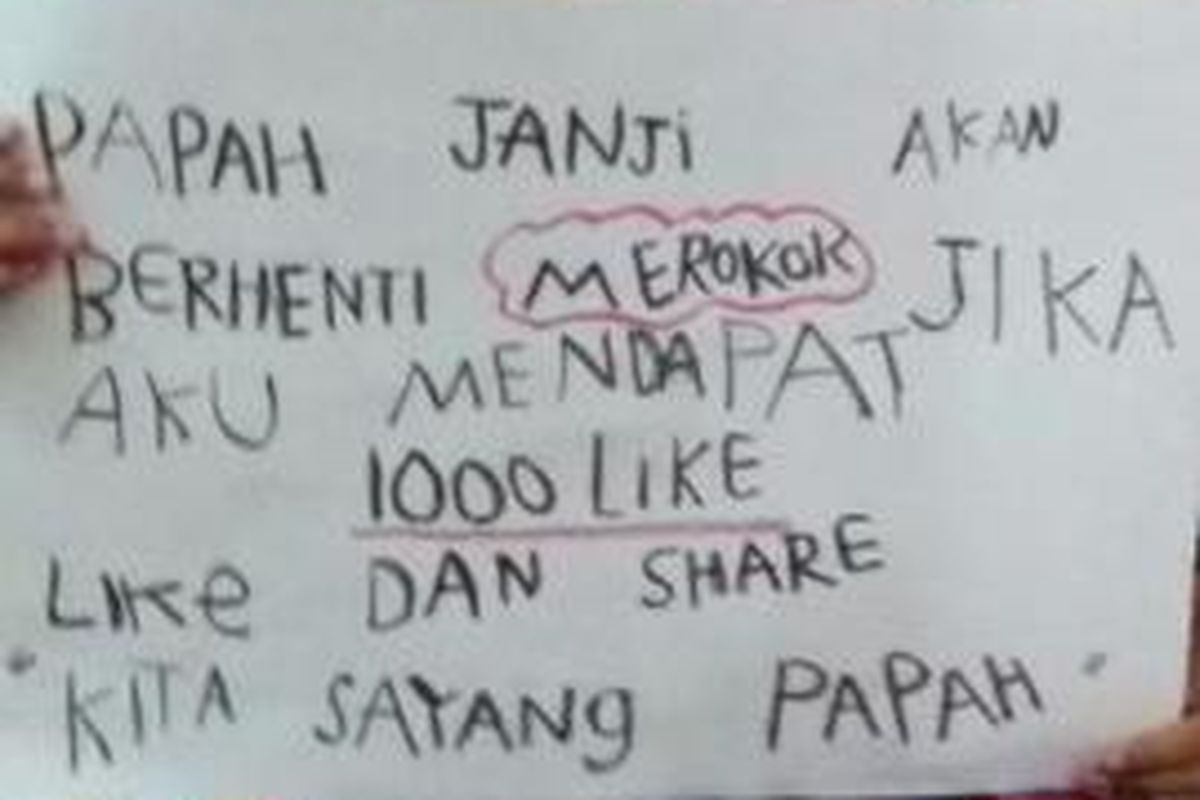 PAPAH JANJi AKAN
BERHENTI MEROKOK JIKA
AKU MENDAPAT
1000 LiKE
LIKe DAN SHARE
"KITA SAYANg PAPAH"